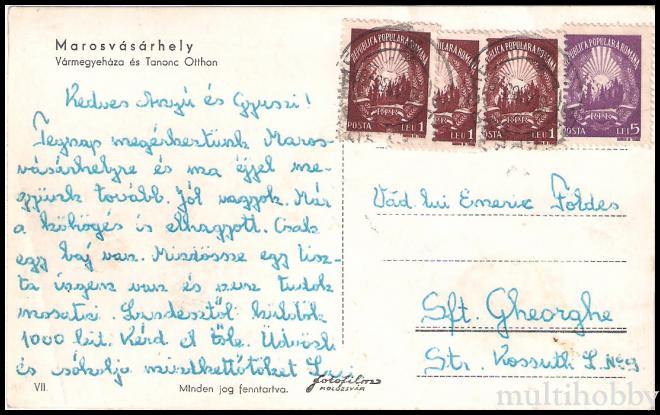 Marosvásárhely
Vármegyeháza és Tanonc Otthon
REPUBLICA POPULARA ROMANA
RPR
POSTA LEU 1
LEU 1
REPUBLICA POPULARA ROMANA
RPR
POSTA LEU 1
REPUBLICA POPULARA ROMANA
RPR
POSTA LEI 5
Kedves Anyú és Gyuszi!
Tegnap megérkeztünk Maros-
vásárhelyre és ma éjjel me-
gyünk tovább. Jól vagyok. Már
a köhögés is elhagyott. Csak
egy baj van. Mindössze egy tisz-
ta ingem van és nem tudok
mosatni. küldök
1000 leit. Kérd el tőle. Üdvözli
és csókolja mindkettőtöket
Văd. lui Emeric Földes
Sft. Gheorghe
Str. Kossuth L. No 9
VII.
Minden jog fenntartva.
fotofilm
KOLOZSVÁR
multihobby